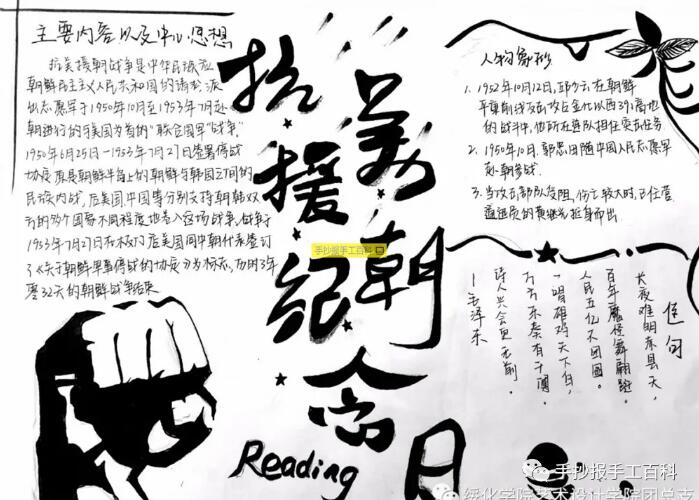 主要内容以及中心思想
抗美援朝战争是中华民族应
朝鲜民主主义人民共和国的请求,派
出志愿军于1950年10月至1953年7月赴
朝进行的与美国为首的"联合国军"战争。
1950年6月25日—1953年7月27日签署停战
协议,原是朝鲜半岛上的朝鲜与韩国之间的
民族内战,后美国、中国等分别支持朝韩双
方的多个国家不同程度地卷入这场战争。战争于
1953年7月27日在板门店美国同中朝代表签订
了《关于朝鲜军事停战的协定》为标志,历时3年
零32天的朝鲜战争结束
抗美
援朝
纪念日
Reading
手抄报手工百科
人物
1. 1952年10月12日,邱少云在朝鲜
平康前线反击攻占金化以西391高地
的战斗中,他所在部队担任突击任务
2. 1950年10月.郭忠田随中国人民志愿军
入朝参战.
3. 当攻击部队受阻,伤亡较大时,已任营
通迅员的黄继光挺身而出.
佳句
长夜难明赤县天,
百年魔怪舞翩跹,
人民五亿不团圆。
一唱雄鸡天下白,
万方乐奏有于阗,
诗人兴会更无前。
—毛泽东
手抄报手工百科
绥化学院艺术设计学院团总支